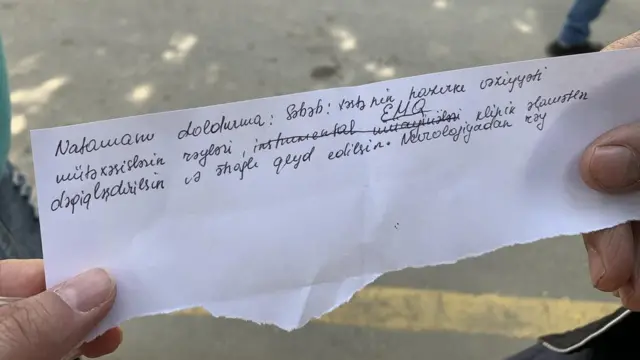 Natamam doldurma: Səbəb: xəstənin hazırkı vəziyyəti
EMQ
mütəxəsislərin rəyləri, instrumental müayinələri klinik əlamətlər
dəqiqləşdirilsin və ətraflı qeyd edilsin. Nevrologiyadan rəy